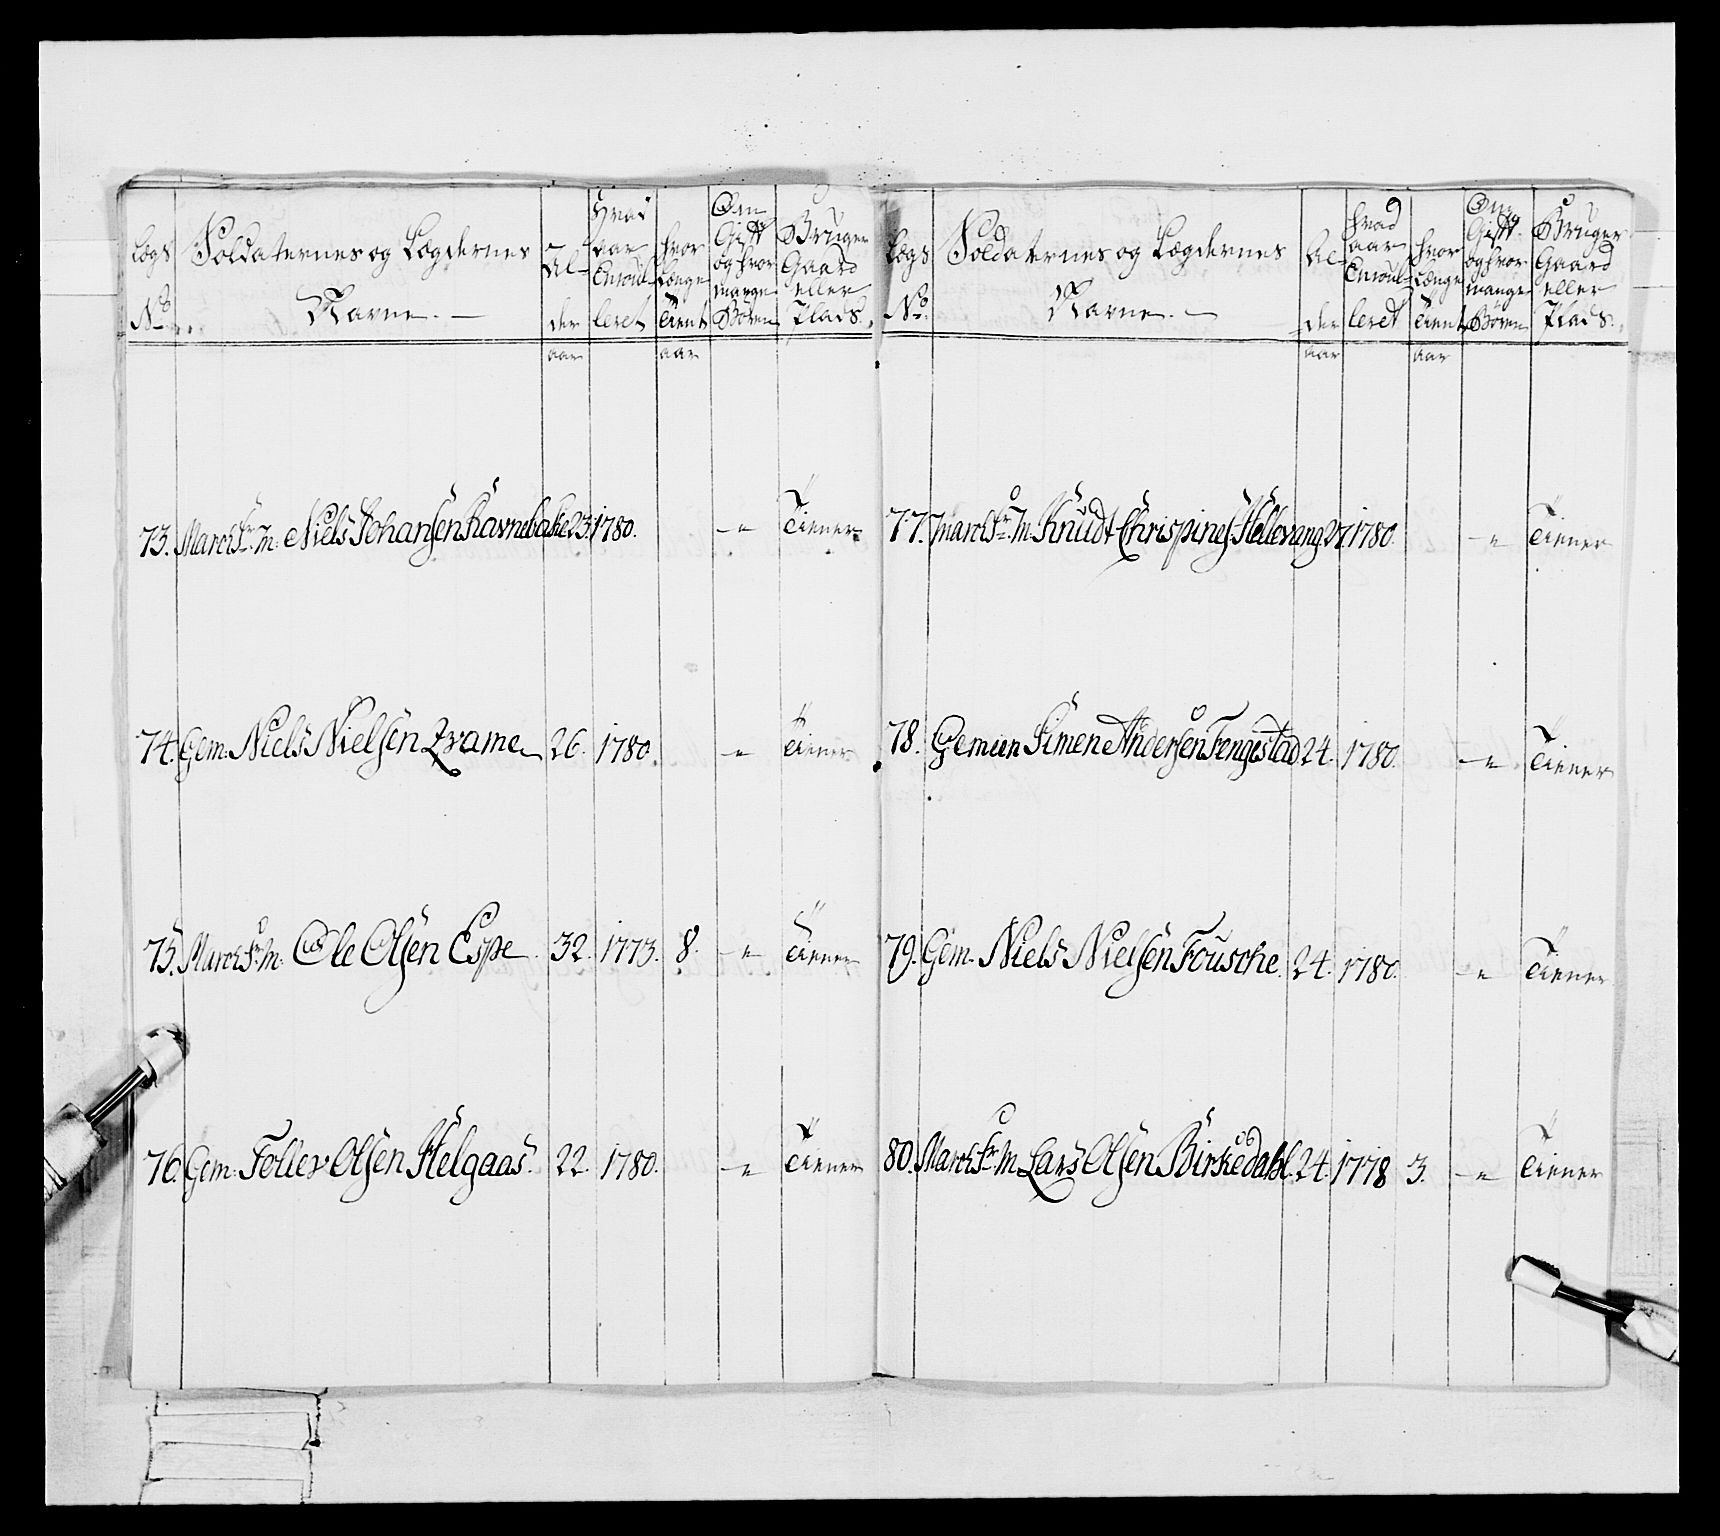 Legs No. Soldaternes og Lægdernes Navne. Al- der Hvad aar Enroul- leret hvor længe Tient Om Gift og hvor mange Børen Bruger Gaard eller Plads.
aar aar
73. March Fr. M: Niels Johansen Ravnebakke 23. 1780. — " Tiener
74. Gem: Niels Nielsen Qvame 26. 1780. — " Tiener
75. March Fr. M: Ole Olsen Espe 32. 1773. 8. — " Tiener
76. Gem: Tollev Olsen Helgaas. 22. 1780. — " Tiener
Legs No. Soldaternes og Lægdernes Navne. Al- der hvad aar Enroul- leret hvor længe Tient Om Gift og hvor mange Børen Bruger Gaard eller Plads.
aar aar
77. March Fr. M. Knudt Chrispines Hellevang 27 1780. — " Tiener
78. Gemeen Simen Andersen Tengestad 24. 1780. — " Tiener
79. Gem. Niels Nielsen Fousche. 24. 1780. — " Tiener
80. March Fr. M. Lars Olsen Birkedahl. 24. 1778 3. — " Tiener